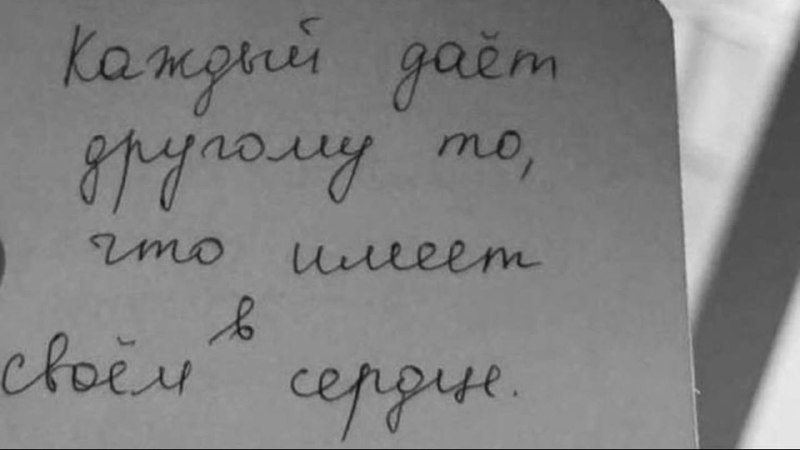 Каждый даёт
другому то,
что имеет
в
своём сердце.